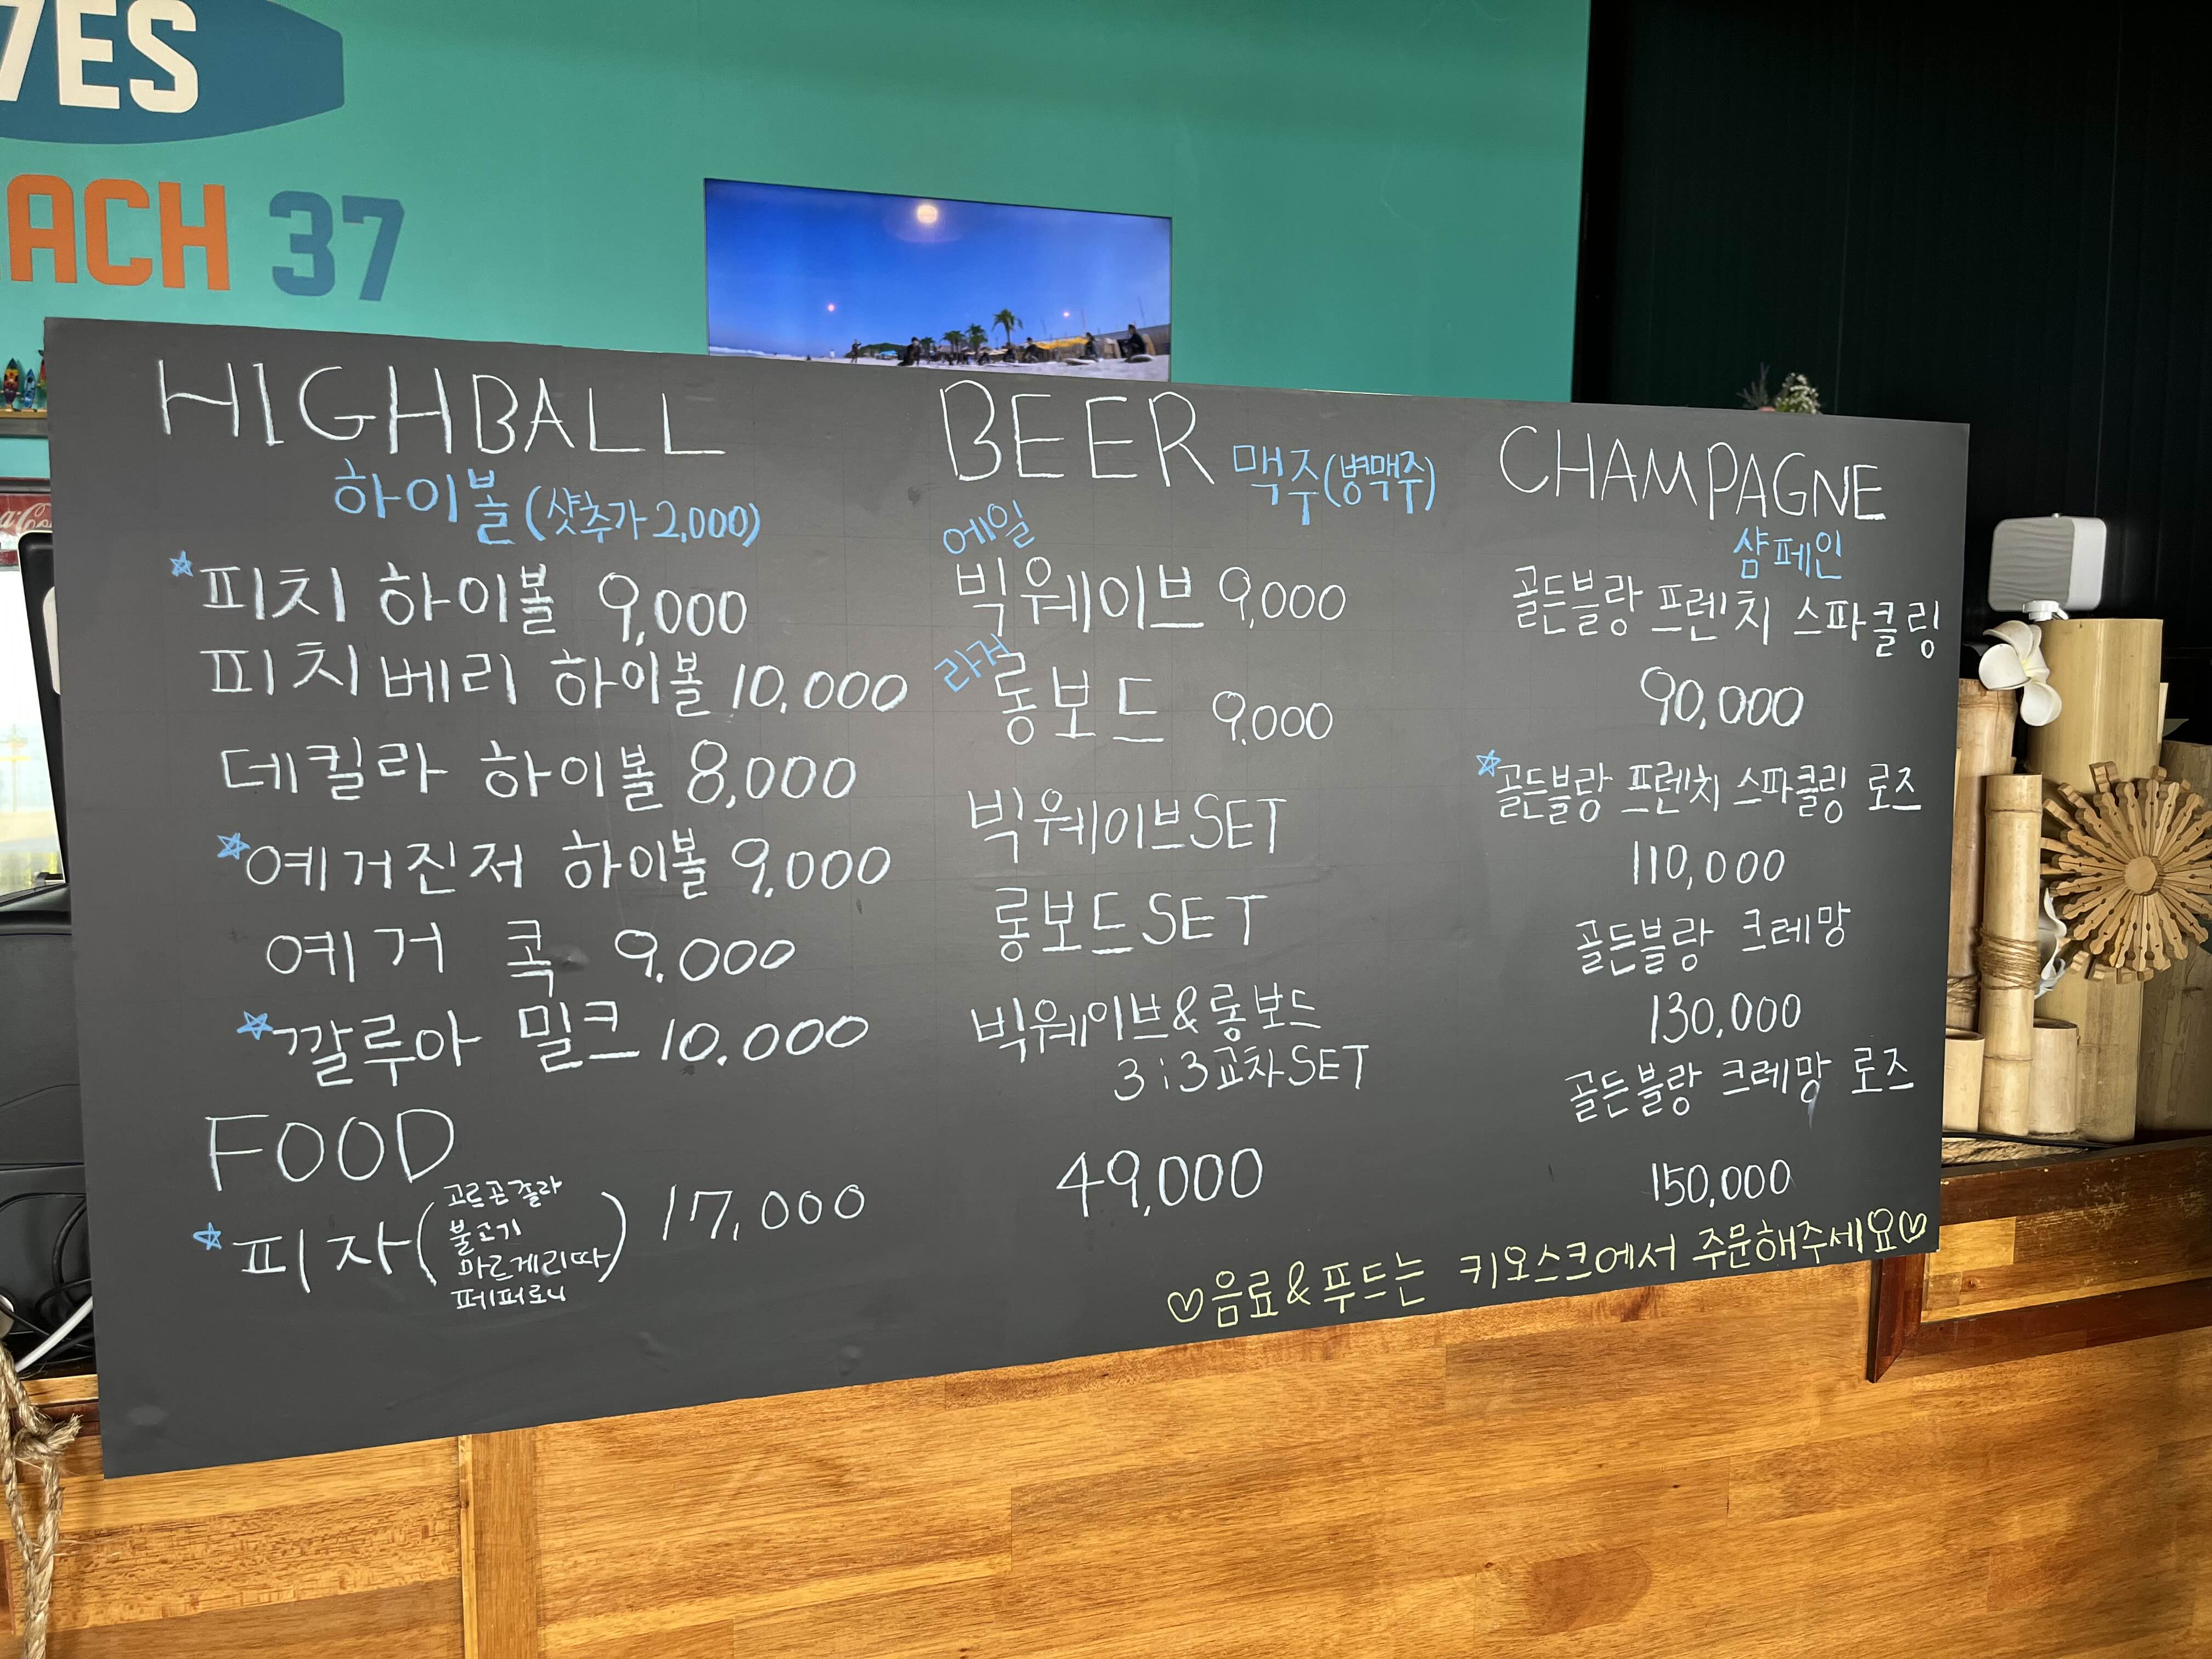 7ES
ACH 37
HIGHBALL
하이볼 (샷추가 2,000)
☆피치 하이볼 9,000
피치베리 하이볼 10,000
데킬라 하이볼 8,000
☆예거진저 하이볼 9,000
예거 콕 9,000
☆깔루아 밀크 10,000
FOOD
☆피자 (고르곤졸라
불고기
마르게리따
페퍼로니) 17,000
BEER 맥주(병맥주)
에일
빅웨이브 9,000
라거
롱보드 9,000
빅웨이브SET
롱보드SET
빅웨이브&롱보드
3:3교차SET
49,000
CHAMPAGNE
샴페인
골든블랑 프렌치 스파클링
90,000
☆골든블랑 프렌치 스파클링 로즈
110,000
골든블랑 크레망
130,000
골든블랑 크레망 로즈
150,000
♡음료&푸드는 키오스크에서 주문해주세요♡